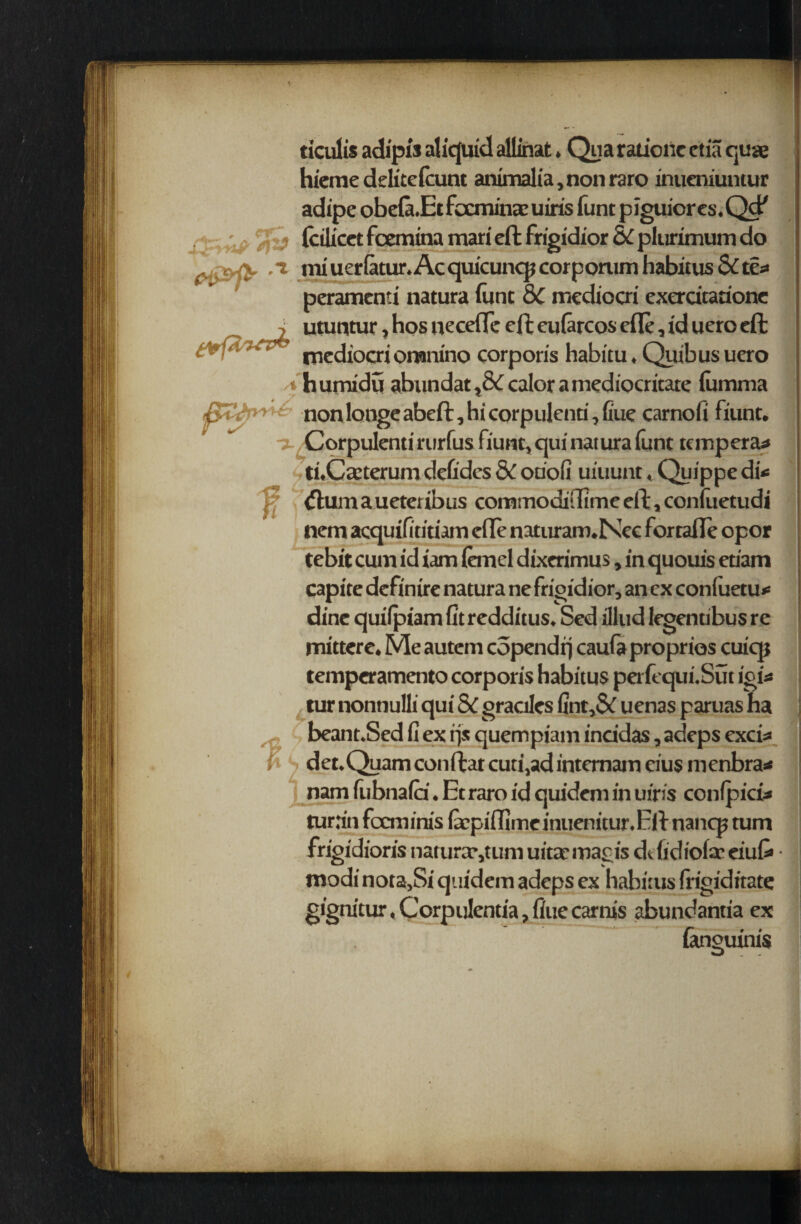 ticulis adipis aliquid allinat. Qua ratione etiã quæ
hieme delitescunt animalia, non raro inueniuntur
adipe obesa. Et fœminæ uiris sunt pĩguiores. Qd'
scilicet fœmina mari est frigidior & plurimum do
mi uersatur. Ac quicunqꝫ corporum habitus & tẽ=
peramenti natura sunt & mediocri exercitatione
utuntur, hos necesse est eusarcos esse, id uero est
mediocri omnino corporis habitu. Quibus uero
humidũ abundat, & calor a mediocritate summa
non longe abest, hi corpulenti, siue carnosi fiunt.
Corpulenti rursus fiunt, qui natura sunt tempera=
ti. Cæterum desides & otiosi uiuunt. Quippe di=
ctum a ueteribus commodissime est, consuetudi
nem acquisititiam esse naturam. Nec fortasse opor
tebit cum id iam semel dixerimus, in quouis etiam
capite definire natura ne frigidior, an ex consuetu=
dine quispiam sit redditus. Sed illud legentibus re
mittere. Me autem cõpendij causa proprios cuiqꝫ
temperamento corporis habitus persequi. Sũt igi=
tur nonnulli qui & graciles sint, & uenas paruas ha
beant. Sed si ex ijs quempiam incidas, adeps exci=
det. Quam constat cuti, ad internam eius menbra=
nam subnasci. Et raro id quidem in uiris conspici=
tur: in fœminis sæpissime inuenitur. Est nanqꝫ tum
frigidioris naturæ, tum uitæ magis desidiosæ eius=
modi nota, Si quidem adeps ex habitus frigiditate
gignitur. Corpulentia, siue carnis abundantia ex
sanguinis